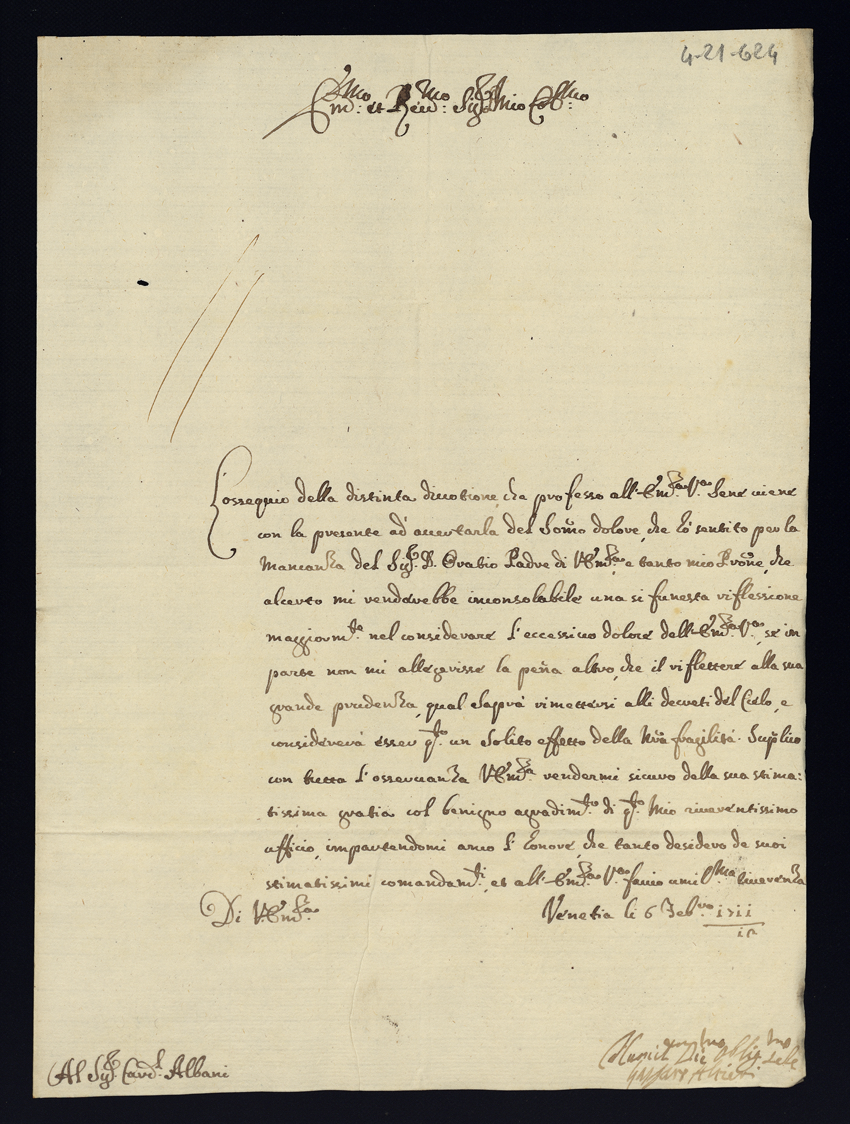 4-21-624
Em:mo et Reu:mo Sig:r Mio Col:mo
L'ossequio della distinta diuotione, che professo all'Em:za V:a Sene viene
con la presente ad accertarla del Som̃o dolore, che hò sentito per la
Mancanza del Sig:r D. Oratio Padre di V. Em:za e tanto mio Prõne, che
alcerto mi renderebbe inconsolabile una si funesta riflessione
maggiorm:te nel considerare l'eccessiuo dolore dell'Em:za V:a, se in
parte non mi allegerisse la pena altro, che il riflettere alla sua
grande prudenza, qual saprà rimettersi alli decreti del Cielo, e
considererà esser q:to un Solito effetto della Nr̃a fragilità. Suplico
con tutta l'osseruanza V. Em:za rendermi sicuro della sua stima:
tissima gratia col benigno agradim:to di q:to Mio riuerentissimo
ufficio, impartendomi anco l'honore, che tanto desidero de suoi
stimatissimi comandam:ti, et all'Em:za V:a faccio umil:ma riuerenza
Di V. Em:za
Venetia li 6 Feb:ro 1711
Al Sig:r Card:l Albani